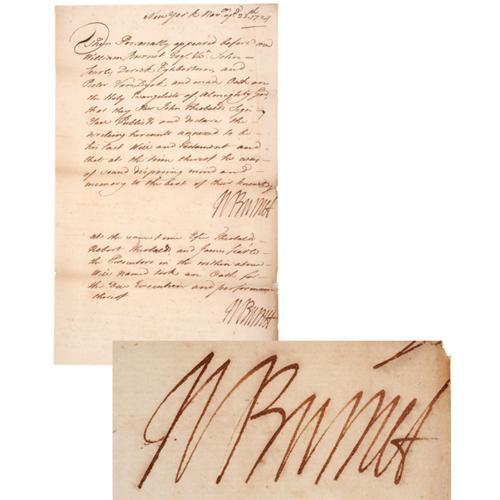 New York Nov
Then Personally appeared before me
William Burnet Esqr. &c. John
Searle, Derick Egbertson, and
Peter Van Dyck and made Oath on
the Holy Evangelists of Almighty God
that they saw John Theobalds Sign
Publish and declare the
writing hereunto annexed to be
his last Will and Testament and
that at the time thereof he was
of sound disposing mind and
memory to the best of their knowledge
W Burnet
at the same time
Robert Theobalds, and James Searle
the Executors in the within above
Will named took an Oath for
the Due Execution and performance
thereof
W Burnet
W Burnet